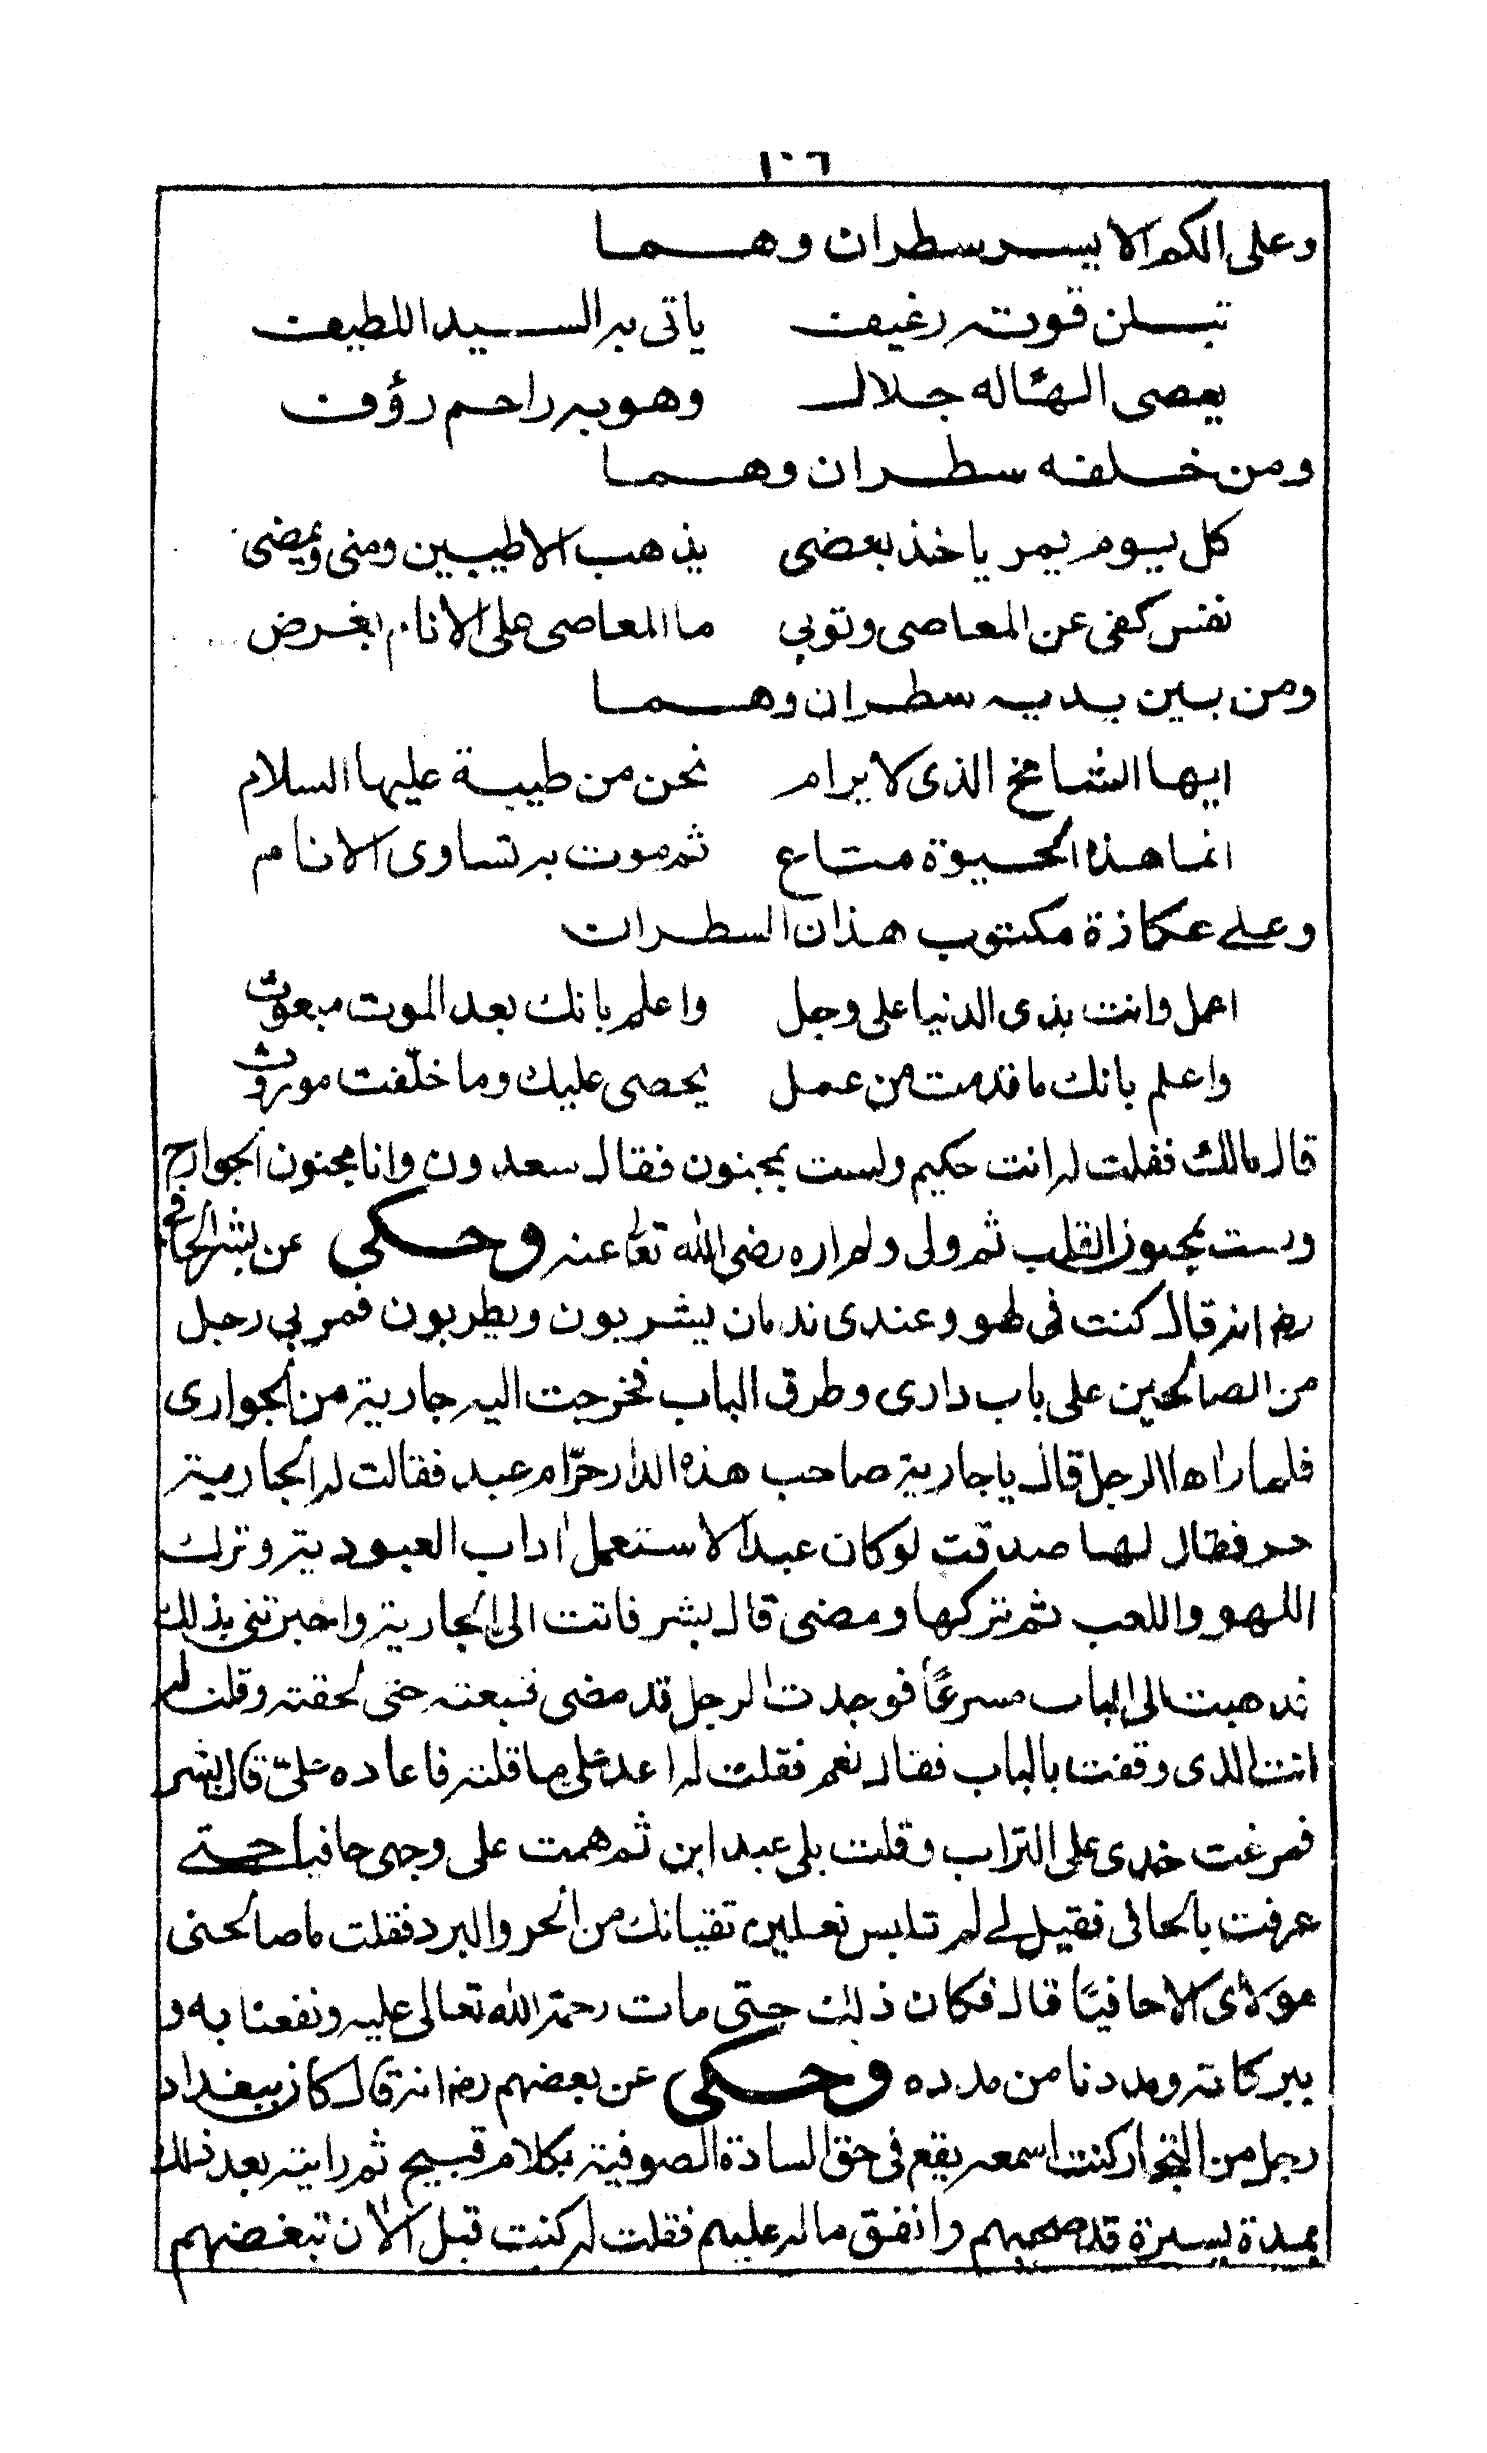 ١٠٦
وعلى الكم الايسر سطران وهما
تبلن قوته رغيف ياتى به السيد اللطيف
يعصى الهًا له جلال وهو به راحم رؤف
ومن خلفه سطران وهما
كل يوم يمر ياخذ بعضى يذهب الاطيبين ومنى ويمضى
نفس كفى عن المعاصى وتوبى ما المعاصى على الانام بغرض
ومن بين يديه سطران وهما
ايها الشامخ الذى لا يرام نحن من طيبة عليها السلام
انما هذه الحيوة متاع ثم موت به تساوى الانام
وعلى عكازة مكتوب هذان السطران
اعمل وانت بذى الدنيا على وجل واعلم بانك بعد الموت مبعوث
واعلم بانك ما قدمت من عمل يحصى عليك وما خلّفت موروث
قال مالك فقلت له انت حكيم ولست بمجنون فقال سعدون وانا مجنون الجوارح
وست بمجنون القلب ثم ولى ولم اره رضى الله تعالى عنه وحكى عن بشر الحافى
رضه انه قال كنت فى لهو وعندى ندمان يشربون ويطربون فمر بى رجل
من الصالحين على باب دارى وطرق الباب فخرجت اليه جارية من الجوارى
فلما راها الرجل قال يا جارية صاحب هذه الدار حرّ ام عبد فقالت له الجارية
حر فقال لها صدقت لو كان عبدا لاستعمل اداب العبودية وترك
اللهو واللعب ثم تركها ومضى قال بشر فاتت الى الجارية واخبرتنى بذلك
فذهبت الى الباب مسرعًا فوجدت الرجل قد مضى فتبعته حتى لحقته وقلت له
انت الذى وقفت بالباب فقال نعم فقلت له اعد على ما قلته فاعاده علىّ قال بشر
فمرغت خدى على التراب وقلت بلى عبد ابن ثم همت على وجهى حافيا حتى
عرفت بالحافى فقيل لى لم تلبس نعلين تقيانك من الحر والبرد فقلت ما صالحنى
مولاى الا حافيًا قال فكان ذلك حتى مات رحمة الله تعالى عليه ونفعنا به و
ببركاته ومددنا من مدده وحكى عن بعضهم رضه انه قال كان ببغداد
رجل من التجار كنت اسمعه يقع فى حق السادة الصوفية بكلام قبيح ثم رايته بعد ذلك
بمدة يسيرة قد صحبهم وانفق ماله عليهم فقلت له كنت قبل الآن تبغضهم